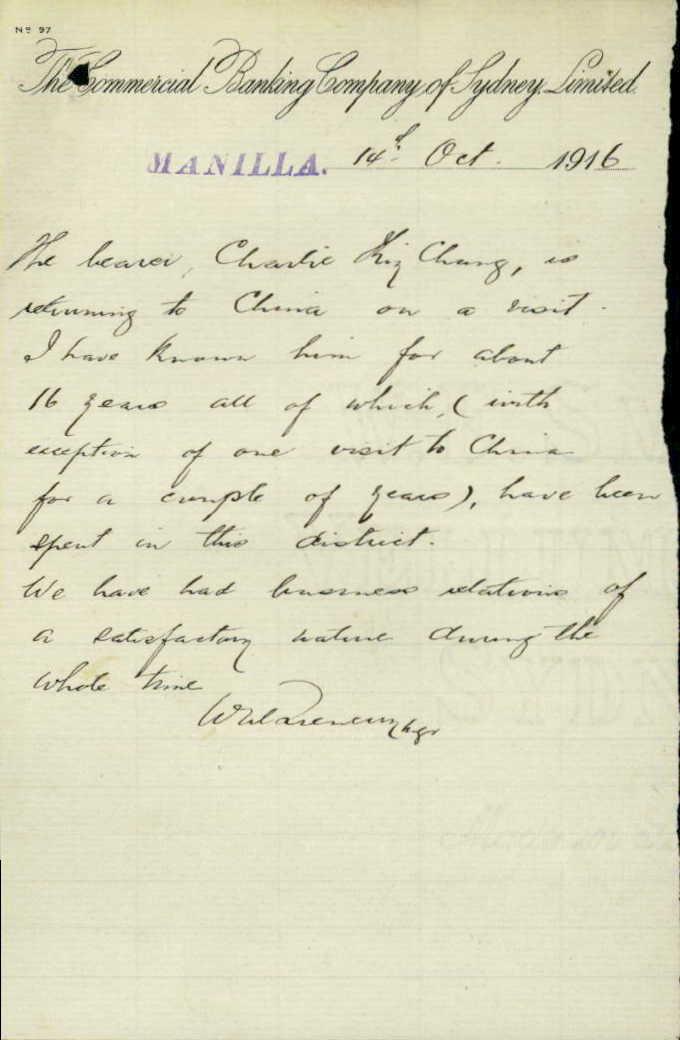 No 97
The Commercial Banking Company of Sydney Limited.
MANILLA. 14th Oct. 1916
The bearer, Charlie Chung, is
returning to China on a visit.
I have known him for about
16 years all of which, (with
exception of one visit to China
for a couple of years), have been
spent in this district.
We have had business relations of
a satisfactory nature during the
whole time
Mgr